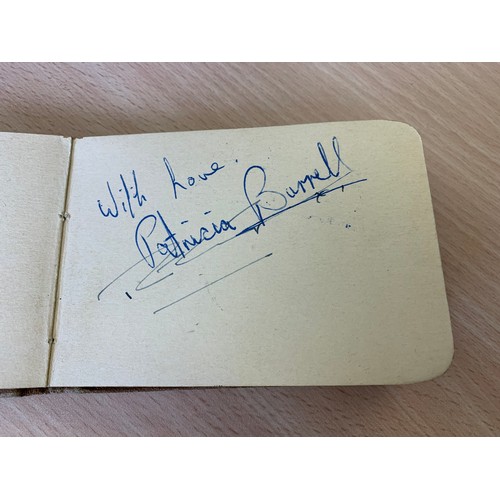 With Love.
Patricia Burrell